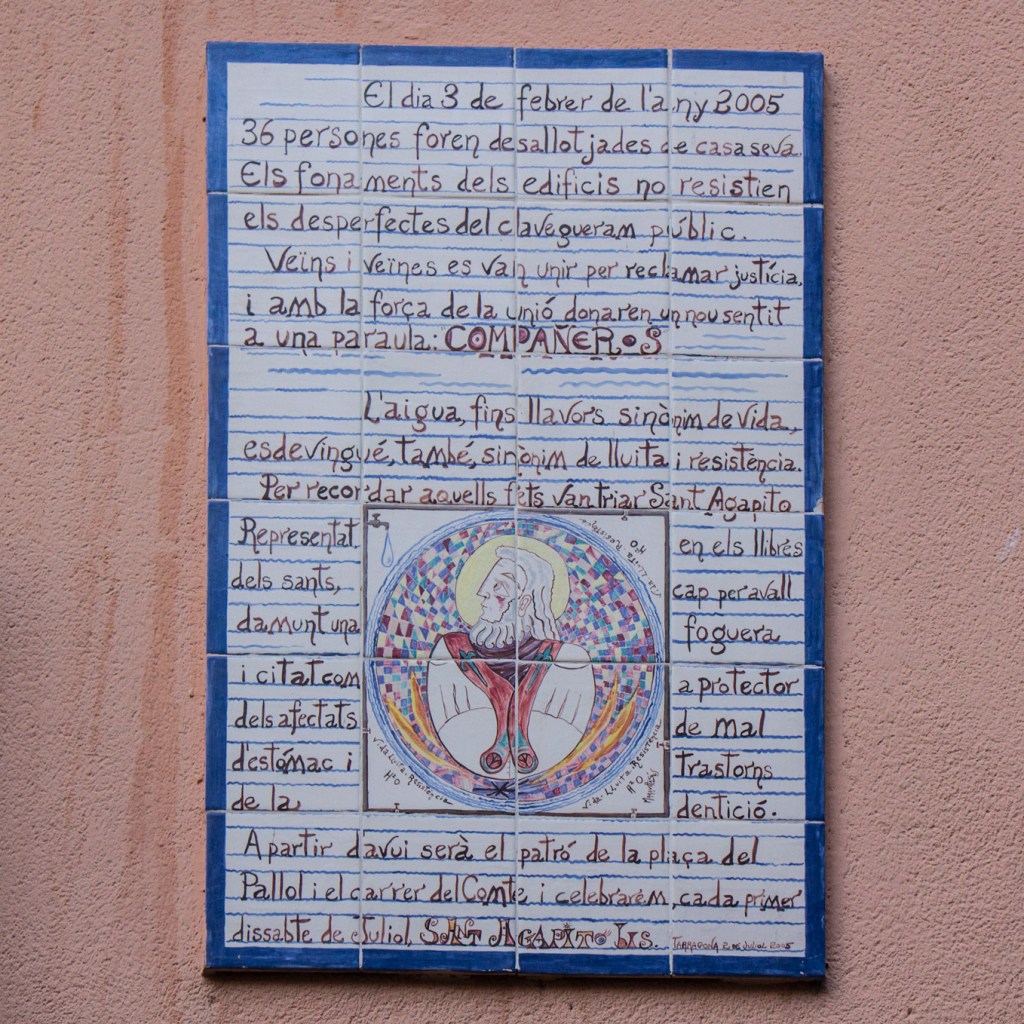 El dia 3 de febrer de l'any 2005
36 persones foren desallotjades de casa seva.
Els fonaments dels edificis no resistien
els desperfectes del clavegueram públic.
Veïns i veïnes es van unir per reclamar justícia,
i amb la força de la unió donaren un nou sentit
a una paraula: COMPAÑEROS
L'aigua, fins llavors sinònim de vida,
esdevingué, també, sinònim de lluita i resistència.
Per recordar aquells fets van triar Sant Agapito
Representat en els llibres
dels sants, cap per avall
damunt una foguera
i citat com a protector
dels afectats de mal
d'estómac i trastorns
de la dentició.
Vida Lluita Resistència
H2O
Vida Lluita Resistència
H2O
Vida Lluita Resistència
H2O
A partir d'avui serà el patró de la plaça del
Pallol i el carrer del Comte i celebrarem, cada primer
dissabte de Juliol, SANT AGAPITO LIS.
TARRAGONA 2 DE JULIOL 2005